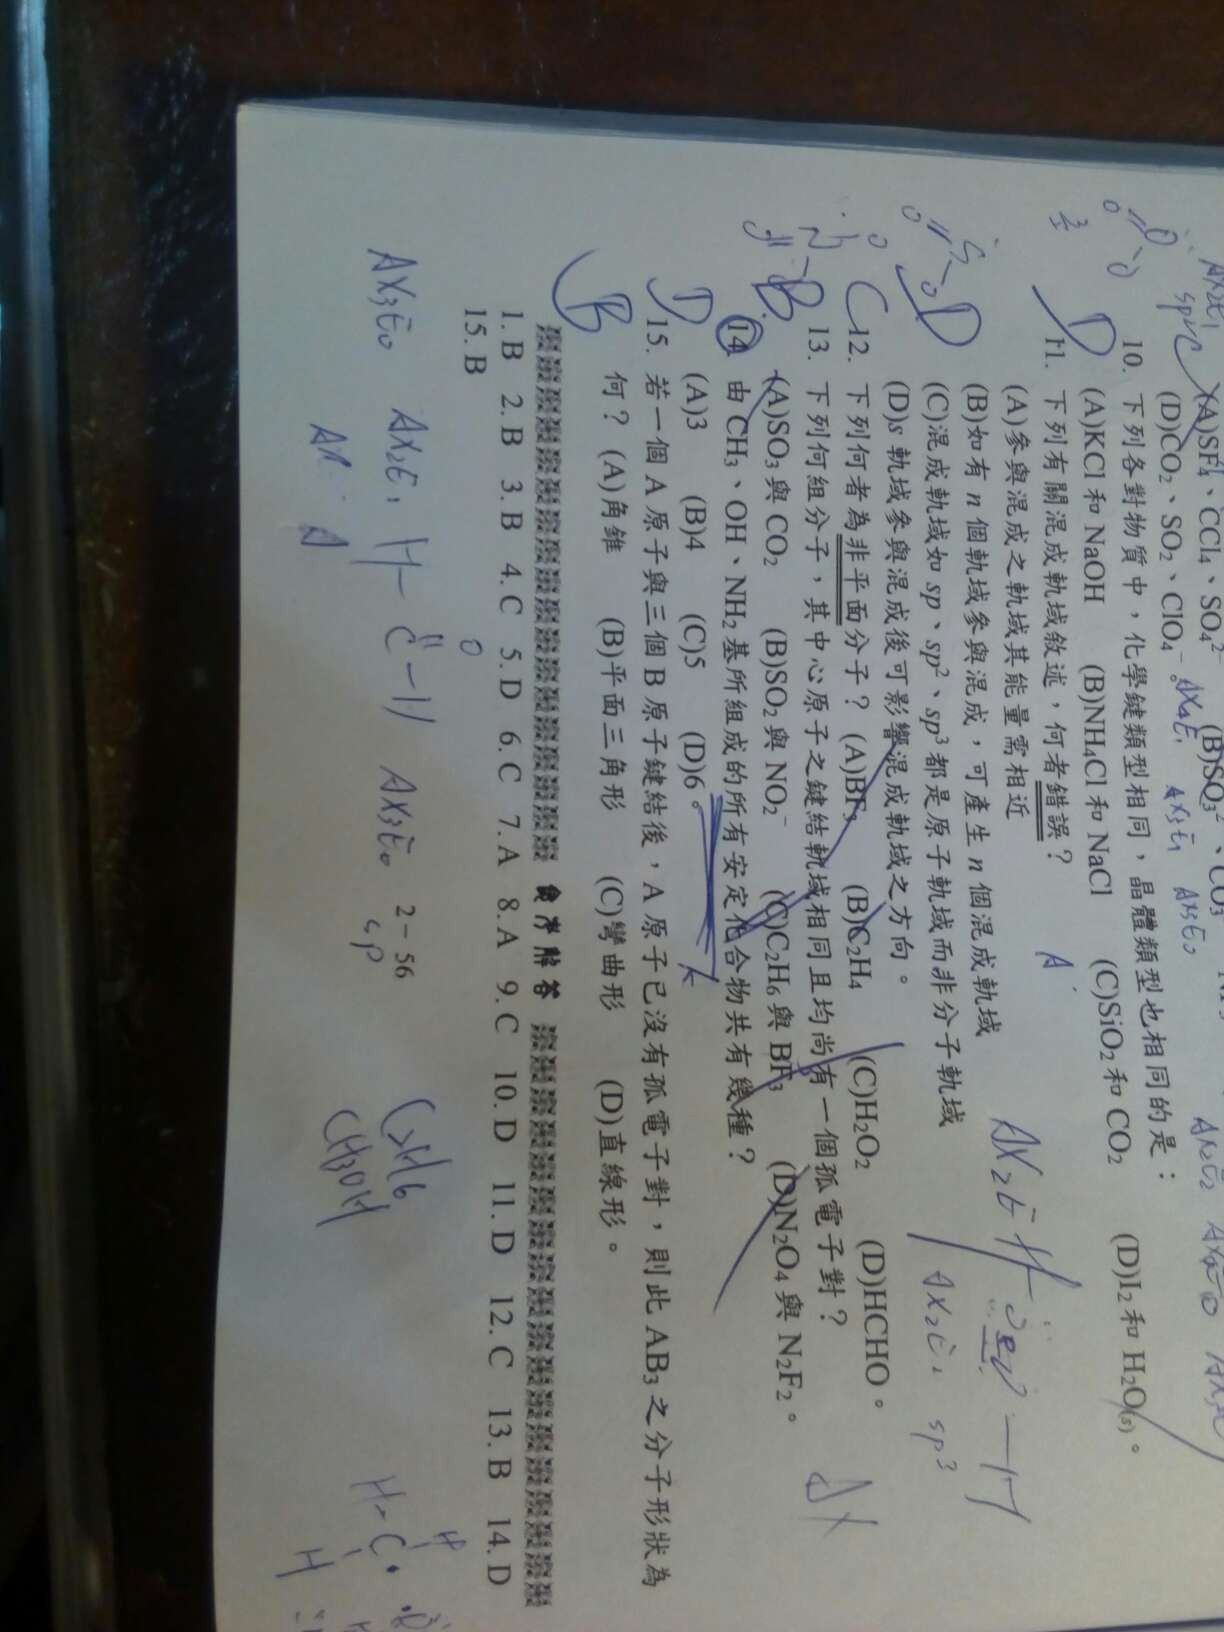 (A)SF₄、CCl₄、SO₄²⁻ (B)SO₃²⁻、CO₃
(D)CO₂、SO₂、ClO₄⁻。
AX₄E₁ AX₃E₁ AX₃E₀
10. 下列各對物質中，化學鍵類型相同，晶體類型也相同的是：
(A)KCl 和 NaOH (B)NH₄Cl 和 NaCl (C)SiO₂ 和 CO₂ (D)I₂ 和 H₂O(s)。
D 11. 下列有關混成軌域敘述，何者錯誤？
(A)參與混成之軌域其能量需相近
(B)如有 n 個軌域參與混成，可產生 n 個混成軌域
(C)混成軌域如 sp、sp²、sp³ 都是原子軌域而非分子軌域
(D)s 軌域參與混成後可影響混成軌域之方向。
AX₂E₁ sp³
C 12. 下列何者為非平面分子？ (A)BF₃ (B)C₂H₄ (C)H₂O₂ (D)HCHO。
B 13. 下列何組分子，其中心原子之鍵結軌域相同且均尚有一個孤電子對？
(A)SO₃ 與 CO₂ (B)SO₂ 與 NO₂⁻ (C)C₂H₆ 與 BF₃ (D)N₂O₄ 與 N₂F₂。
14. 由 CH₃、OH、NH₂ 基所組成的所有安定化合物共有幾種？
D (A)3 (B)4 (C)5 (D)6。
15. 若一個 A 原子與三個 B 原子鍵結後，A 原子已沒有孤電子對，則此 AB₃ 之分子形狀為
B 何？ (A)角錐 (B)平面三角形 (C)彎曲形 (D)直線形。
解答
1. B 2. B 3. B 4. C 5. D 6. C 7. A 8. A 9. C 10. D 11. D 12. C 13. B 14. D
15. B
AX₃E₀ AX₂E₁ H-C-H AX₃E₀ 2－56
sp
C₂H₆
CH₃OH